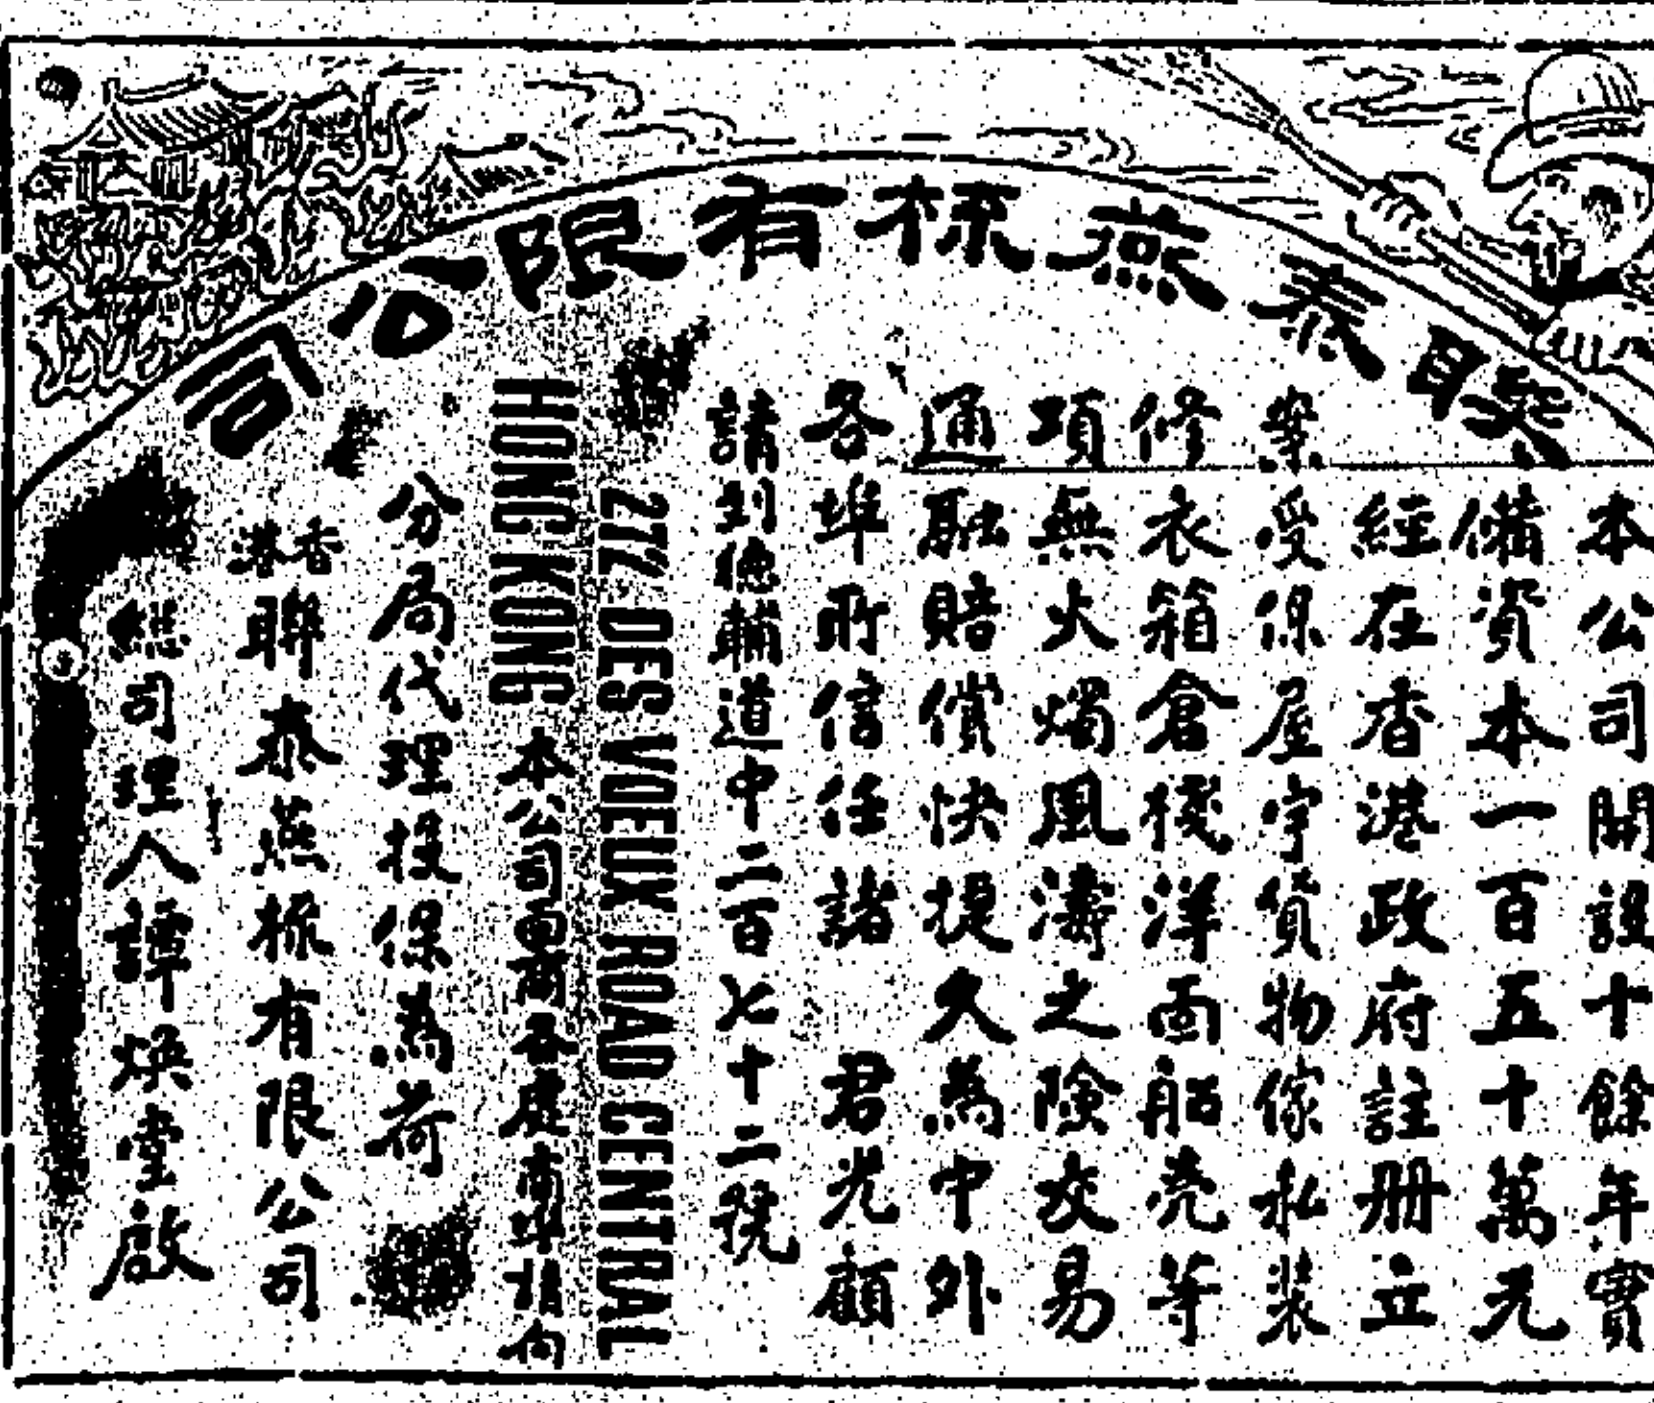 聯泰燕梳有限公司
本公司開設十餘年實
備資本一百五十萬元
經在香港政府註册立
案受保屋宇貨物傢私裝
修衣箱倉棧洋面船壳等
項無火燭風濤之險交易
通融賠償快捷久為中外
各埠所信任諸 君光顧
請到德輔道中二百七十二號
272 DES VOEUX ROAD CENTRAL
HONG KONG
本公司各處商埠請向
分局代理投保為荷
香港聯泰燕梳有限公司
總司理人譚煥堂啟